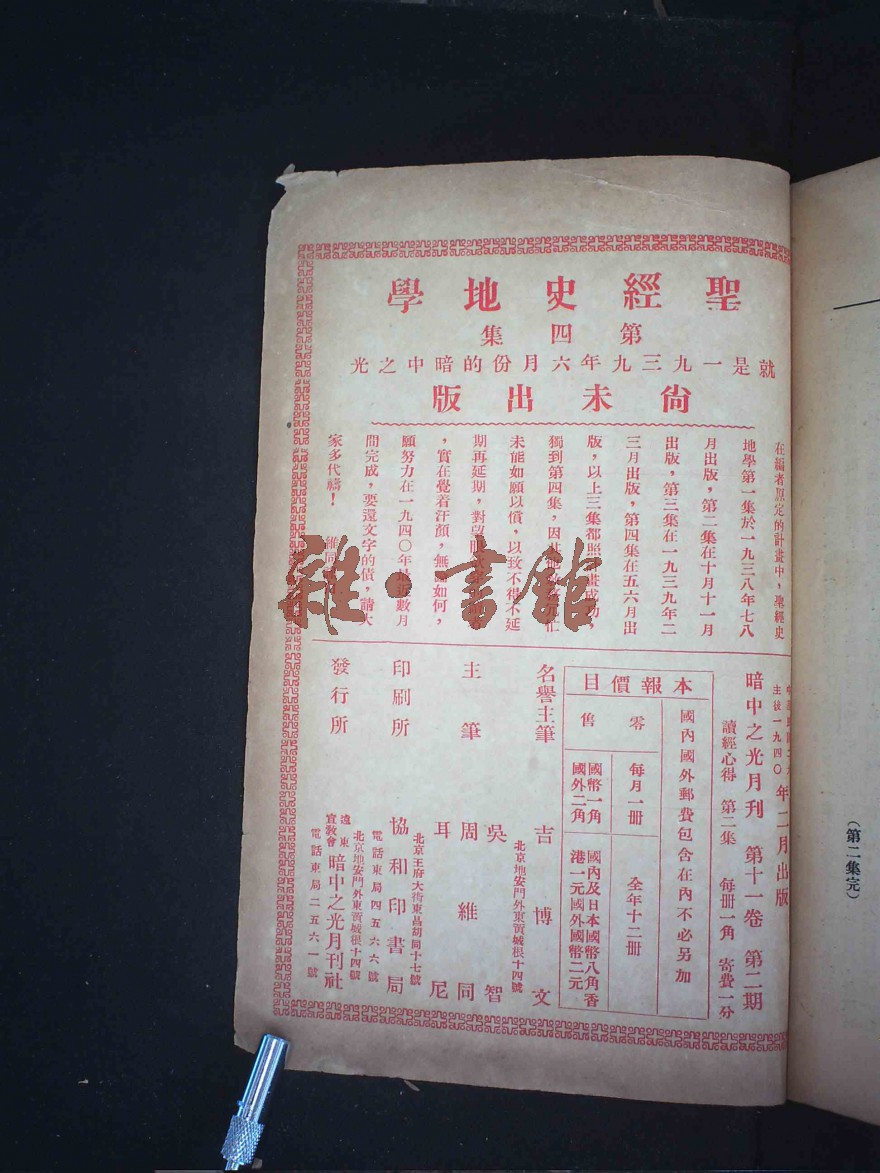 聖經史地學
第四集
就是一九三九年六月份的暗中之光
尚未出版
在編者原定的計畫中，聖經史
地學第一集於一九三八年七八
月出版，第二集在十月十一月
出版，第三集在一九三九年二
三月出版，第四集在五六月出
版，以上三集都照計畫成功，
獨到第四集，因
未能如願以償，以致不得不延
期再延期，對
，實在覺着汗顏，無如何，
願努力在一九四〇年最近數月
間完成，要還文字的債，請大
家多代禱！
主後一九四〇年二月出版
暗中之光月刊 第十一卷 第二期
讀經心得 第二集 每冊一角 寄費一分
本報價目
國內國外郵費包含在內不必另加
零售
每月一冊
國幣一角
國外二角
全年十二冊
國內及日本國幣八角香
港一元國外國幣二元
名譽主筆 吉博文
北京地安門外東皇城根十四號
主筆
吳智
周維同
耳尼
印刷所 協和印書局
北京王府大街東昌胡同十七號
電話東局四五六六號
發行所
遠東宣教會 暗中之光月刊社
北京地安門外東皇城根十四號
電話東局二五六一號
雜·書館
（第二集完）